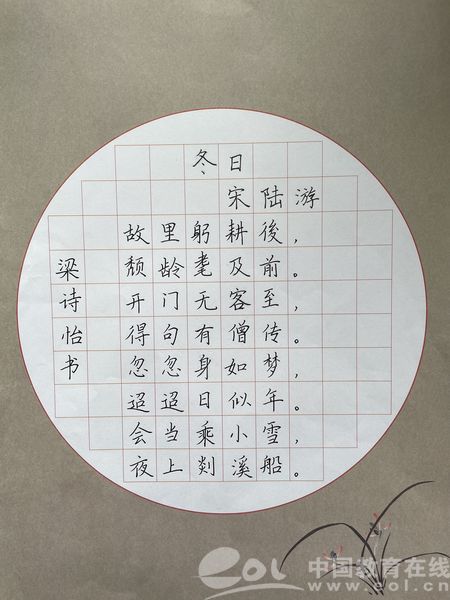 冬日
宋陆游
故里躬耕後，
颓龄耄及前。
开门无客至，
得句有僧传。
忽忽身如梦，
迢迢日似年。
会当乘小雪，
夜上剡溪船。
梁诗怡书
eol 中国教育在线
www.eol.cn